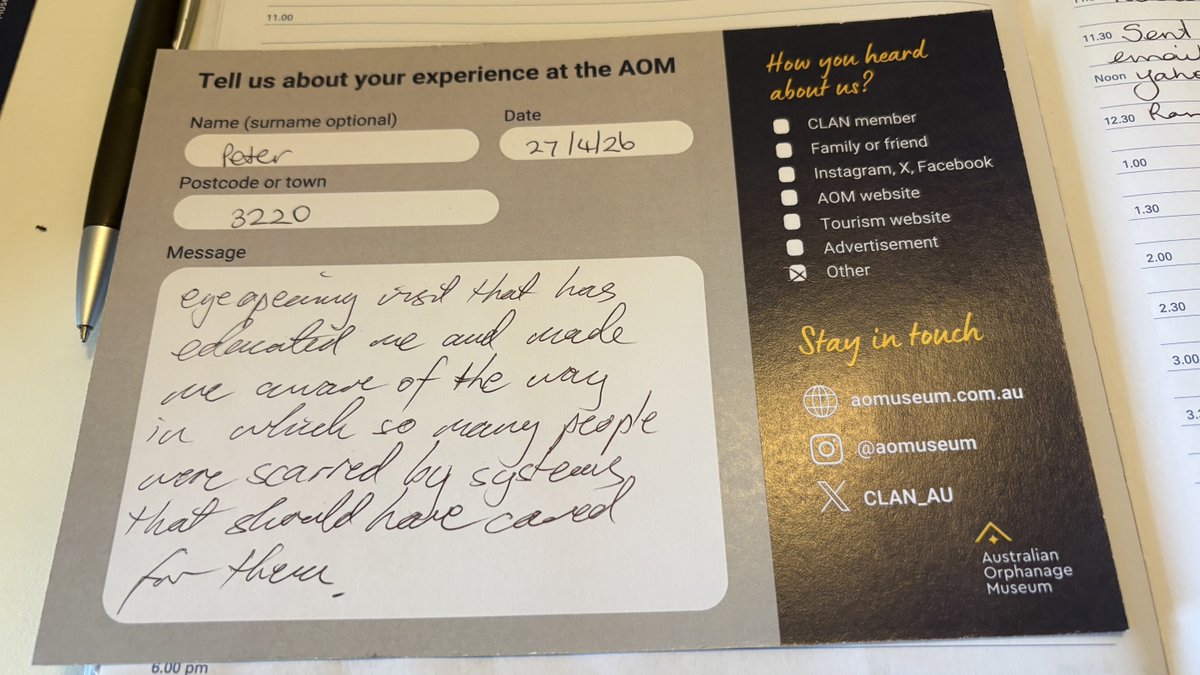 11.00
Tell us about your experience at the AOM
Name (surname optional)
Peter
Date
27/4/26
Postcode or town
3220
Message
eyeopening visit that has
educated me and made
me aware of the way
in which so many people
were scarred by systems
that should have cared
for them.
How you heard
about us?
CLAN member
Family or friend
Instagram, X, Facebook
AOM website
Tourism website
Advertisement
Other
Stay in touch
aomuseum.com.au
@aomuseum
CLAN_AU
Australian
Orphanage
Museum
6.00 pm
11.30 Sent
email
Noon
12.30
1.00
1.30
2.00
2.30
3.00